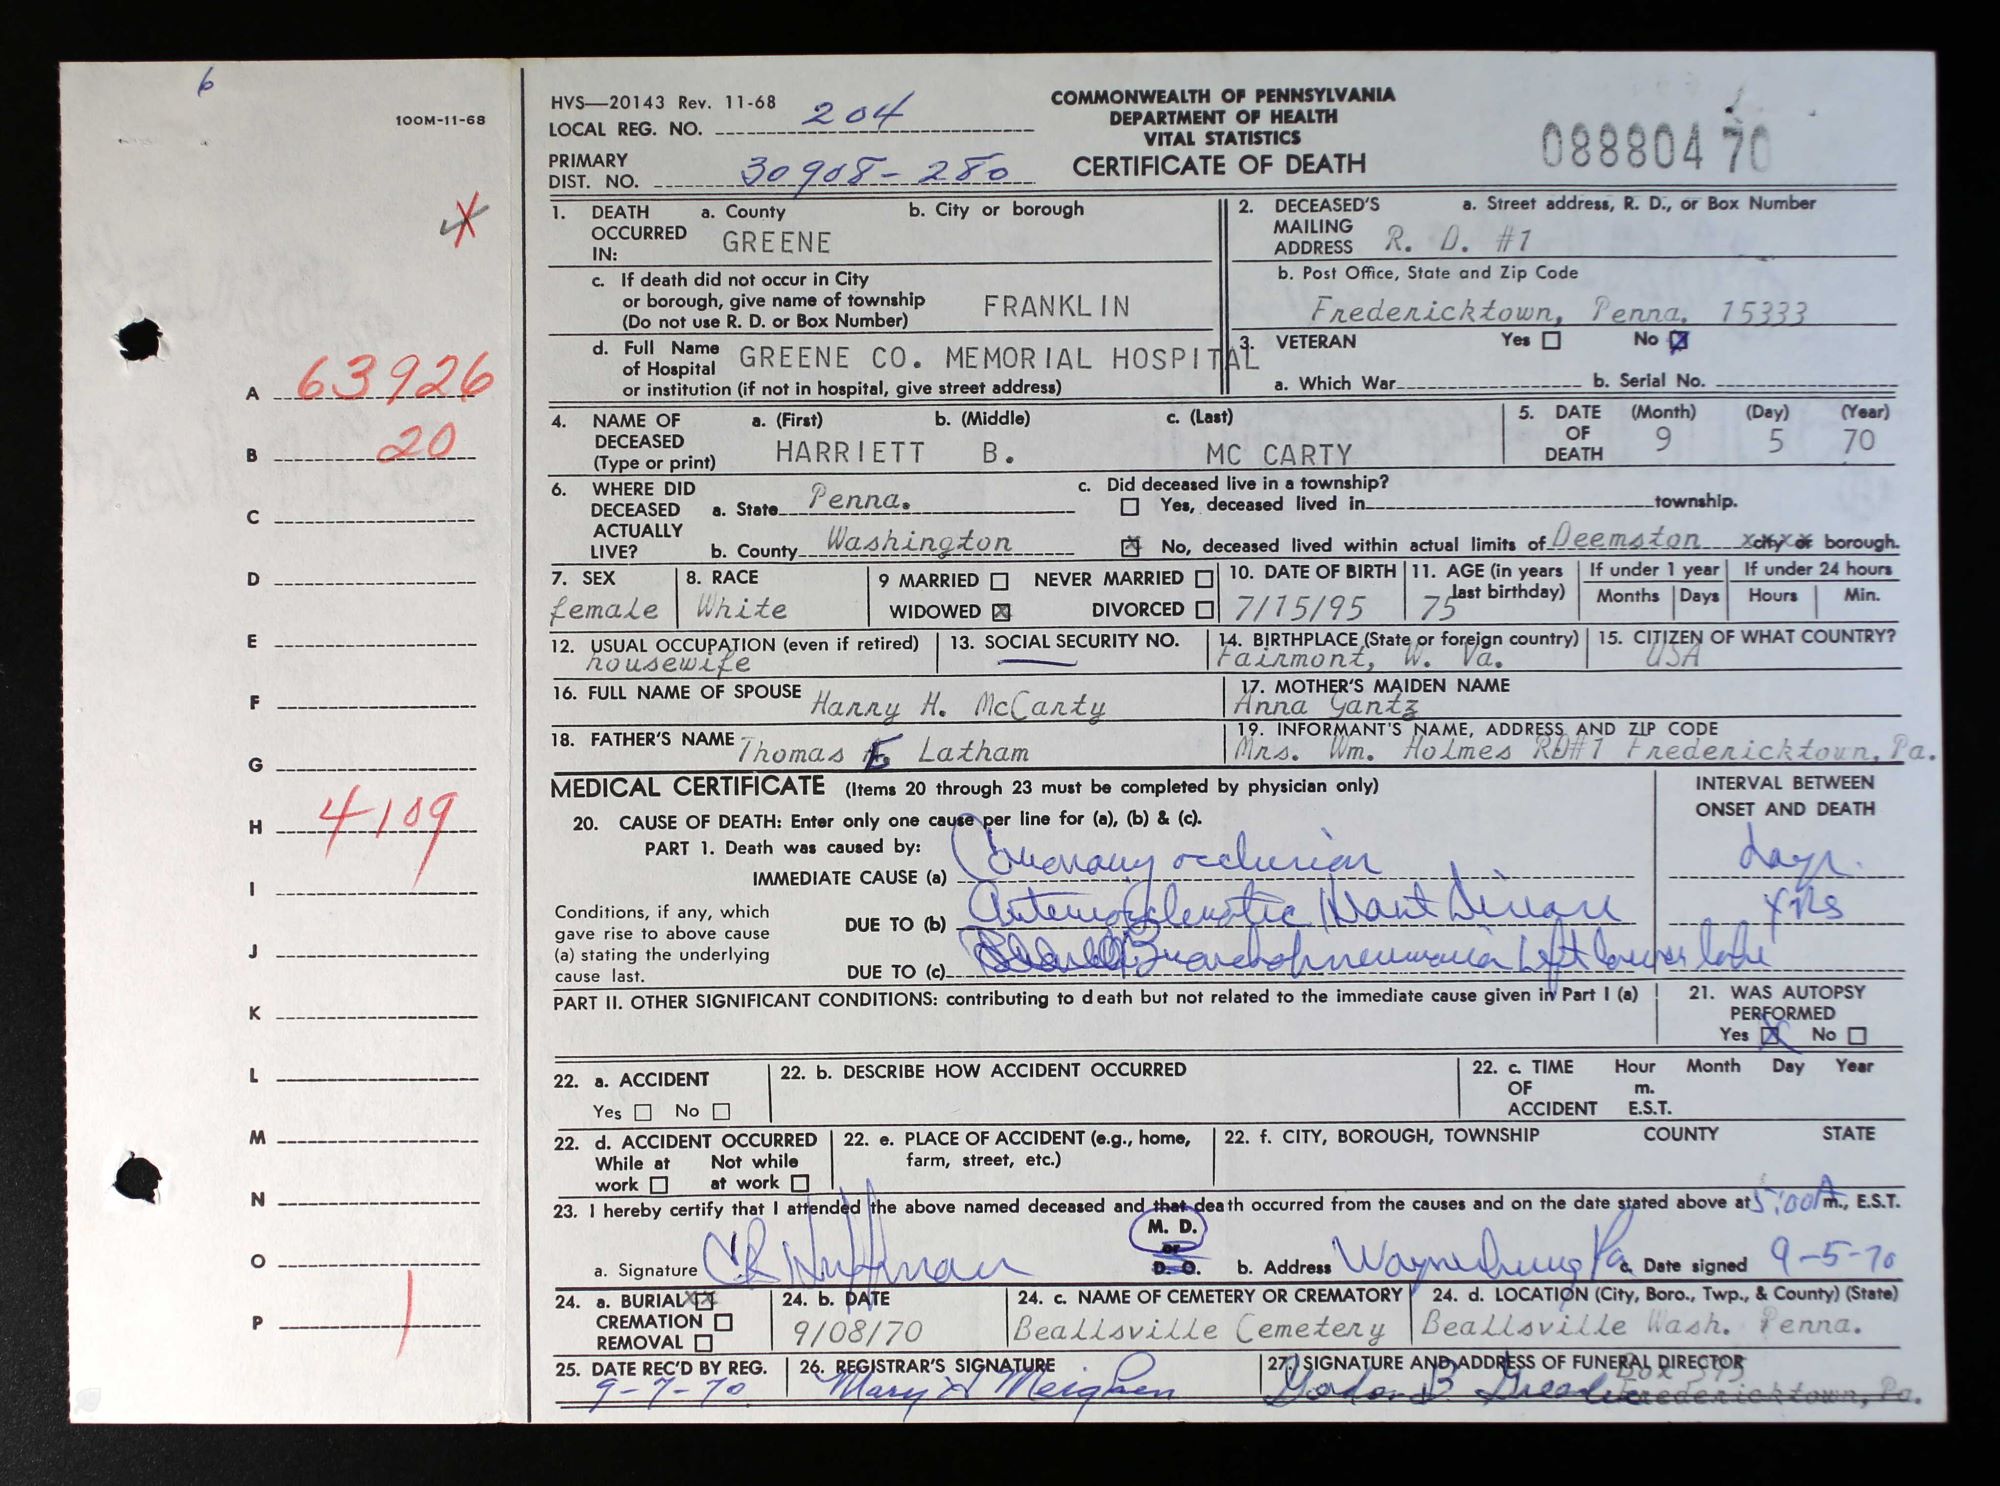 6
100M-11-68
HVS—20143 Rev. 11-68
LOCAL REG. NO. 204
PRIMARY
DIST. NO. 30908-280
COMMONWEALTH OF PENNSYLVANIA
DEPARTMENT OF HEALTH
VITAL STATISTICS
CERTIFICATE OF DEATH
088804 70
1. DEATH OCCURRED IN: a. County GREENE b. City or borough
c. If death did not occur in City
or borough, give name of township FRANKLIN
(Do not use R. D. or Box Number)
d. Full Name of Hospital GREENE CO. MEMORIAL HOSPITAL
or institution (if not in hospital, give street address)
2. DECEASED'S MAILING ADDRESS a. Street address, R. D., or Box Number
R. D. #1
b. Post Office, State and Zip Code
Fredericktown, Penna. 15333
3. VETERAN Yes No X
a. Which War b. Serial No.
4. NAME OF DECEASED (Type or print) a. (First) b. (Middle) c. (Last)
HARRIETT B. MC CARTY
5. DATE OF DEATH (Month) (Day) (Year)
9 5 70
6. WHERE DID DECEASED ACTUALLY LIVE? a. State Penna.
b. County Washington
c. Did deceased live in a township?
Yes, deceased lived in township.
X No, deceased lived within actual limits of Deemston city or borough.
7. SEX female
8. RACE White
9 MARRIED NEVER MARRIED
WIDOWED X DIVORCED
10. DATE OF BIRTH 7/15/95
11. AGE (in years last birthday) 75
If under 1 year Months Days
If under 24 hours Hours Min.
12. USUAL OCCUPATION (even if retired) housewife
13. SOCIAL SECURITY NO. —
14. BIRTHPLACE (State or foreign country) Fairmont, W. Va.
15. CITIZEN OF WHAT COUNTRY? USA
16. FULL NAME OF SPOUSE Harry H. McCarty
17. MOTHER'S MAIDEN NAME Anna Gantz
18. FATHER'S NAME Thomas E Latham
19. INFORMANT'S NAME, ADDRESS AND ZIP CODE
Mrs. Wm. Holmes RD#1 Fredericktown, Pa.
MEDICAL CERTIFICATE (Items 20 through 23 must be completed by physician only)
INTERVAL BETWEEN ONSET AND DEATH
20. CAUSE OF DEATH: Enter only one cause per line for (a), (b) & (c).
PART 1. Death was caused by:
IMMEDIATE CAUSE (a) Coronary occlusion days.
Conditions, if any, which
gave rise to above cause
(a) stating the underlying
cause last.
DUE TO (b) Arteriosclerotic Heart Disease yrs
DUE TO (c) Bronchopneumonia Left lower lobe
PART II. OTHER SIGNIFICANT CONDITIONS: contributing to death but not related to the immediate cause given in Part I (a)
21. WAS AUTOPSY PERFORMED
Yes X No
22. a. ACCIDENT
Yes No
22. b. DESCRIBE HOW ACCIDENT OCCURRED
22. c. TIME OF ACCIDENT Hour m. E.S.T. Month Day Year
22. d. ACCIDENT OCCURRED
While at work Not while at work
22. e. PLACE OF ACCIDENT (e.g., home, farm, street, etc.)
22. f. CITY, BOROUGH, TOWNSHIP COUNTY STATE
23. I hereby certify that I attended the above named deceased and that death occurred from the causes and on the date stated above at 5:00 A m., E.S.T.
a. Signature CR Huffman M. D. or D. O. b. Address Waynesburg Pa c. Date signed 9-5-70
24. a. BURIAL XX
CREMATION
REMOVAL
24. b. DATE 9/08/70
24. c. NAME OF CEMETERY OR CREMATORY
Beallsville Cemetery
24. d. LOCATION (City, Boro., Twp., & County) (State)
Beallsville Wash. Penna.
25. DATE REC'D BY REG. 9-7-70
26. REGISTRAR'S SIGNATURE Mary H Meighen
27. SIGNATURE AND ADDRESS OF FUNERAL DIRECTOR
Gordon B. Box 595
Fredericktown, Pa.
A 63926
B 20
C
D
E
F
G
H 4109
I
J
K
L
M
N
O
P 1